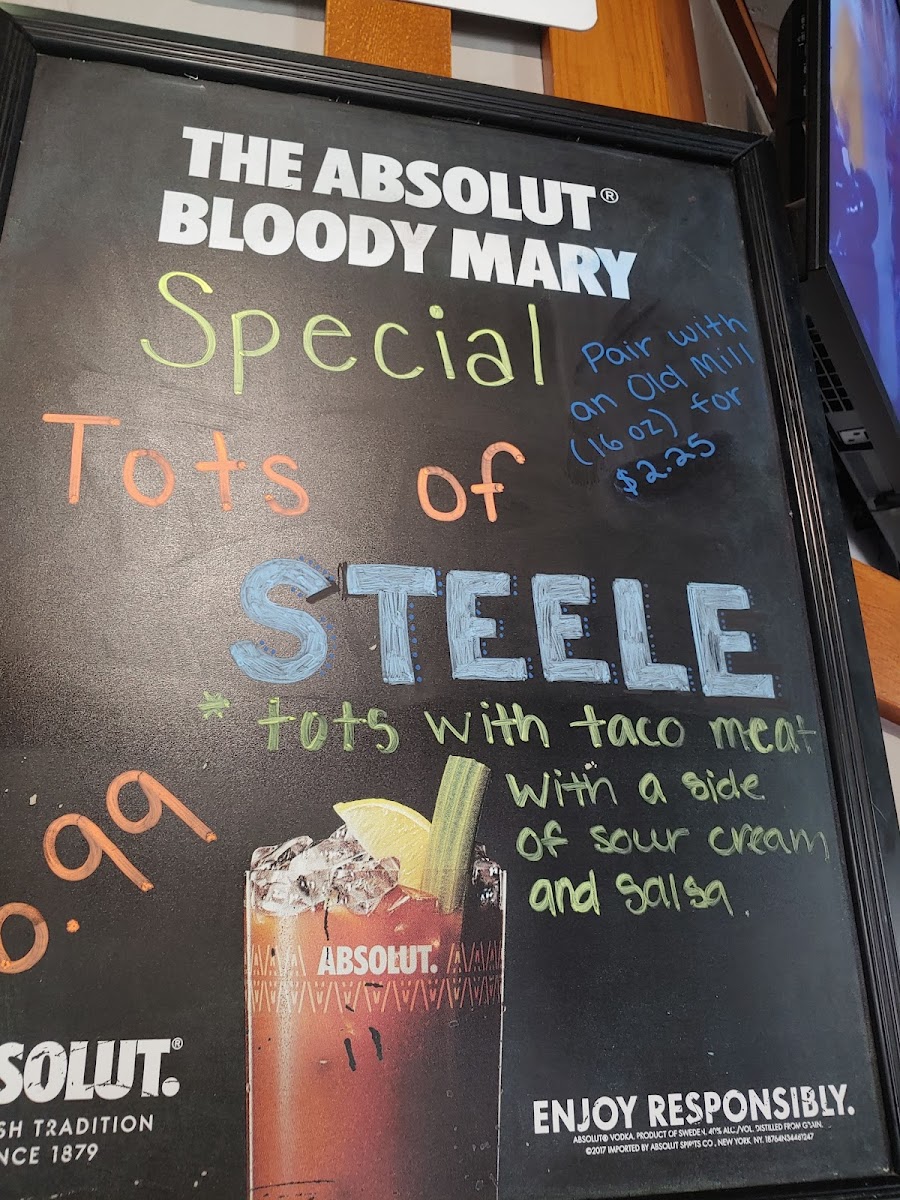 THE ABSOLUT®
BLOODY MARY
Special
Pair with
an Old Mill
(16 oz) for
$2.25
Tots of
STEELE
* tots with taco meat
with a side
of sour cream
and salsa.
.99
ABSOLUT.
SOLUT.®
SH TRADITION
NCE 1879
ENJOY RESPONSIBLY.
ABSOLUT® VODKA. PRODUCT OF SWEDEN. 40% ALC./VOL. DISTILLED FROM GRAIN.
©2017 IMPORTED BY ABSOLUT SPIRITS CO., NEW YORK, NY.